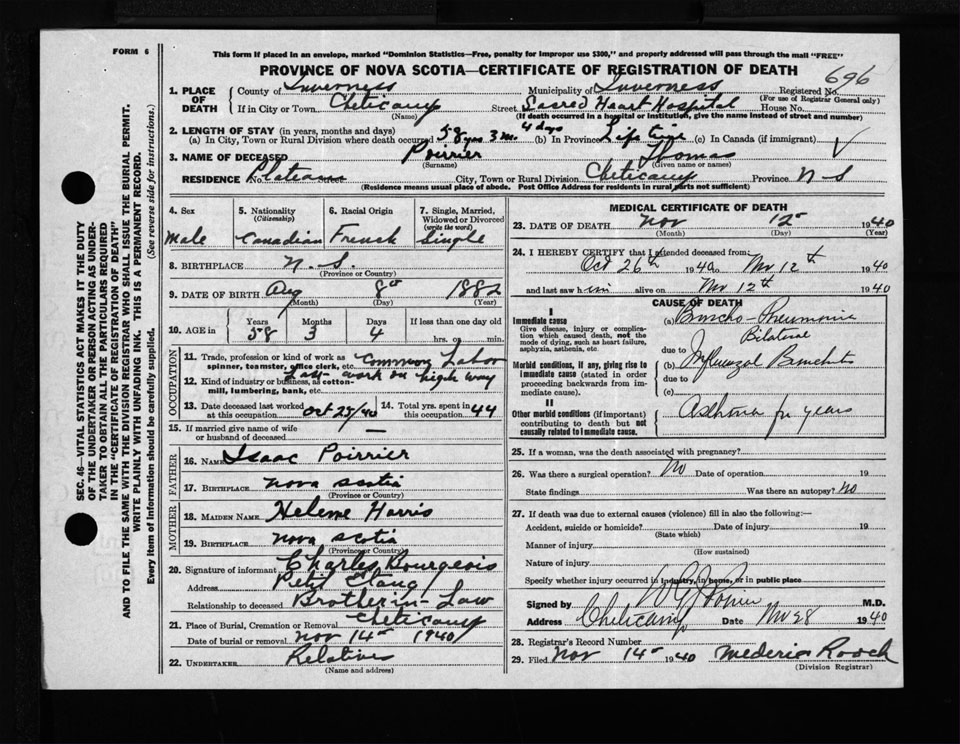 FORM 6
This form if placed in an envelope, marked "Dominion Statistics—Free, penalty for improper use $300," and properly addressed will pass through the mail "FREE"
PROVINCE OF NOVA SCOTIA—CERTIFICATE OF REGISTRATION OF DEATH
696
1. PLACE OF DEATH
County of Inverness Municipality of Inverness Registered No.
(For use of Registrar General only)
If in City or Town Cheticamp Street Sacred Heart Hospital House No.
(Name) (If death occurred in a hospital or institution, give the name instead of street and number)
2. LENGTH OF STAY (in years, months and days)
(a) In City, Town or Rural Division where death occurred 58 yrs 3 m. 4 days (b) In Province Life time (c) In Canada (if immigrant)
3. NAME OF DECEASED Poirrier Thomas
(Surname) (Given name or names)
RESIDENCE No. Plateau Street City, Town or Rural Division Cheticamp Province N-S
(Residence means usual place of abode. Post Office Address for residents in rural parts not sufficient)
4. Sex
Male
5. Nationality
(Citizenship)
Canadian
6. Racial Origin
French
7. Single, Married, Widowed or Divorced
(write the word)
Single
8. BIRTHPLACE N.S.
(Province or Country)
9. DATE OF BIRTH Aug 8 1882
(Month) (Day) (Year)
10. AGE in Years Months Days If less than one day
58 3 4 hrs. or min.
OCCUPATION
11. Trade, profession or kind of work as spinner, teamster, office clerk, etc. Common Labor
12. Kind of industry or business, as cotton-mill, lumbering, bank, etc. Last work on high way
13. Date deceased last worked at this occupation Oct 25/40
14. Total yrs. spent in this occupation 44
15. If married give name of wife or husband of deceased —
FATHER
16. NAME Isaac Poirrier
17. BIRTHPLACE Nova Scotia
(Province or Country)
MOTHER
18. MAIDEN NAME Helene Harris
19. BIRTHPLACE Nova Scotia
(Province or Country)
20. Signature of informant Charles Bourgeois
Address Petit Etang
Relationship to deceased Brother in-Law
21. Place of Burial, Cremation or Removal Cheticamp
Date of burial or removal Nov 14 1940
22. UNDERTAKER Relatives
(Name and address)
MEDICAL CERTIFICATE OF DEATH
23. DATE OF DEATH Nov 12 1940
(Month) (Day) (Year)
24. I HEREBY CERTIFY that I attended deceased from:
Oct 26th 1940 to Nov 12th 1940
and last saw him alive on Nov 12th 1940
CAUSE OF DEATH
I
Immediate cause
Give disease, injury or complication which caused death, not the mode of dying, such as heart failure, asphyxia, asthenia, etc.
(a) Broncho-Pneumonia
Bilateral
due to
Morbid conditions, if any, giving rise to immediate cause (stated in order proceeding backwards from immediate cause)
(b) Influenzal Bronchitis
due to
(c)
II
Other morbid conditions (if important) contributing to death but not causally related to immediate cause.
Asthma for years
25. If a woman, was the death associated with pregnancy?
26. Was there a surgical operation? No Date of operation 19
State findings Was there an autopsy? No
27. If death was due to external causes (violence) fill in also the following:—
Accident, suicide or homicide? Date of injury 19
(State which)
Manner of injury
(How sustained)
Nature of injury
Specify whether injury occurred in industry, in home, or in public place
Signed by M.D.
Address Cheticamp Date Nov 28 1940
28. Registrar's Record Number
29. Filed Nov 14 1940 Mederic Roach
(Division Registrar)
SEC. 46—VITAL STATISTICS ACT MAKES IT THE DUTY
OF THE UNDERTAKER OR PERSON ACTING AS UNDER-
TAKER TO OBTAIN ALL THE PARTICULARS REQUIRED
IN THE "CERTIFICATE OF REGISTRATION OF DEATH"
AND TO FILE THE SAME WITH THE DIVISION REGISTRAR WHO SHALL ISSUE THE BURIAL PERMIT.
WRITE PLAINLY WITH UNFADING INK. THIS IS A PERMANENT RECORD.
Every item of Information should be carefully supplied. (See reverse side for instructions.)